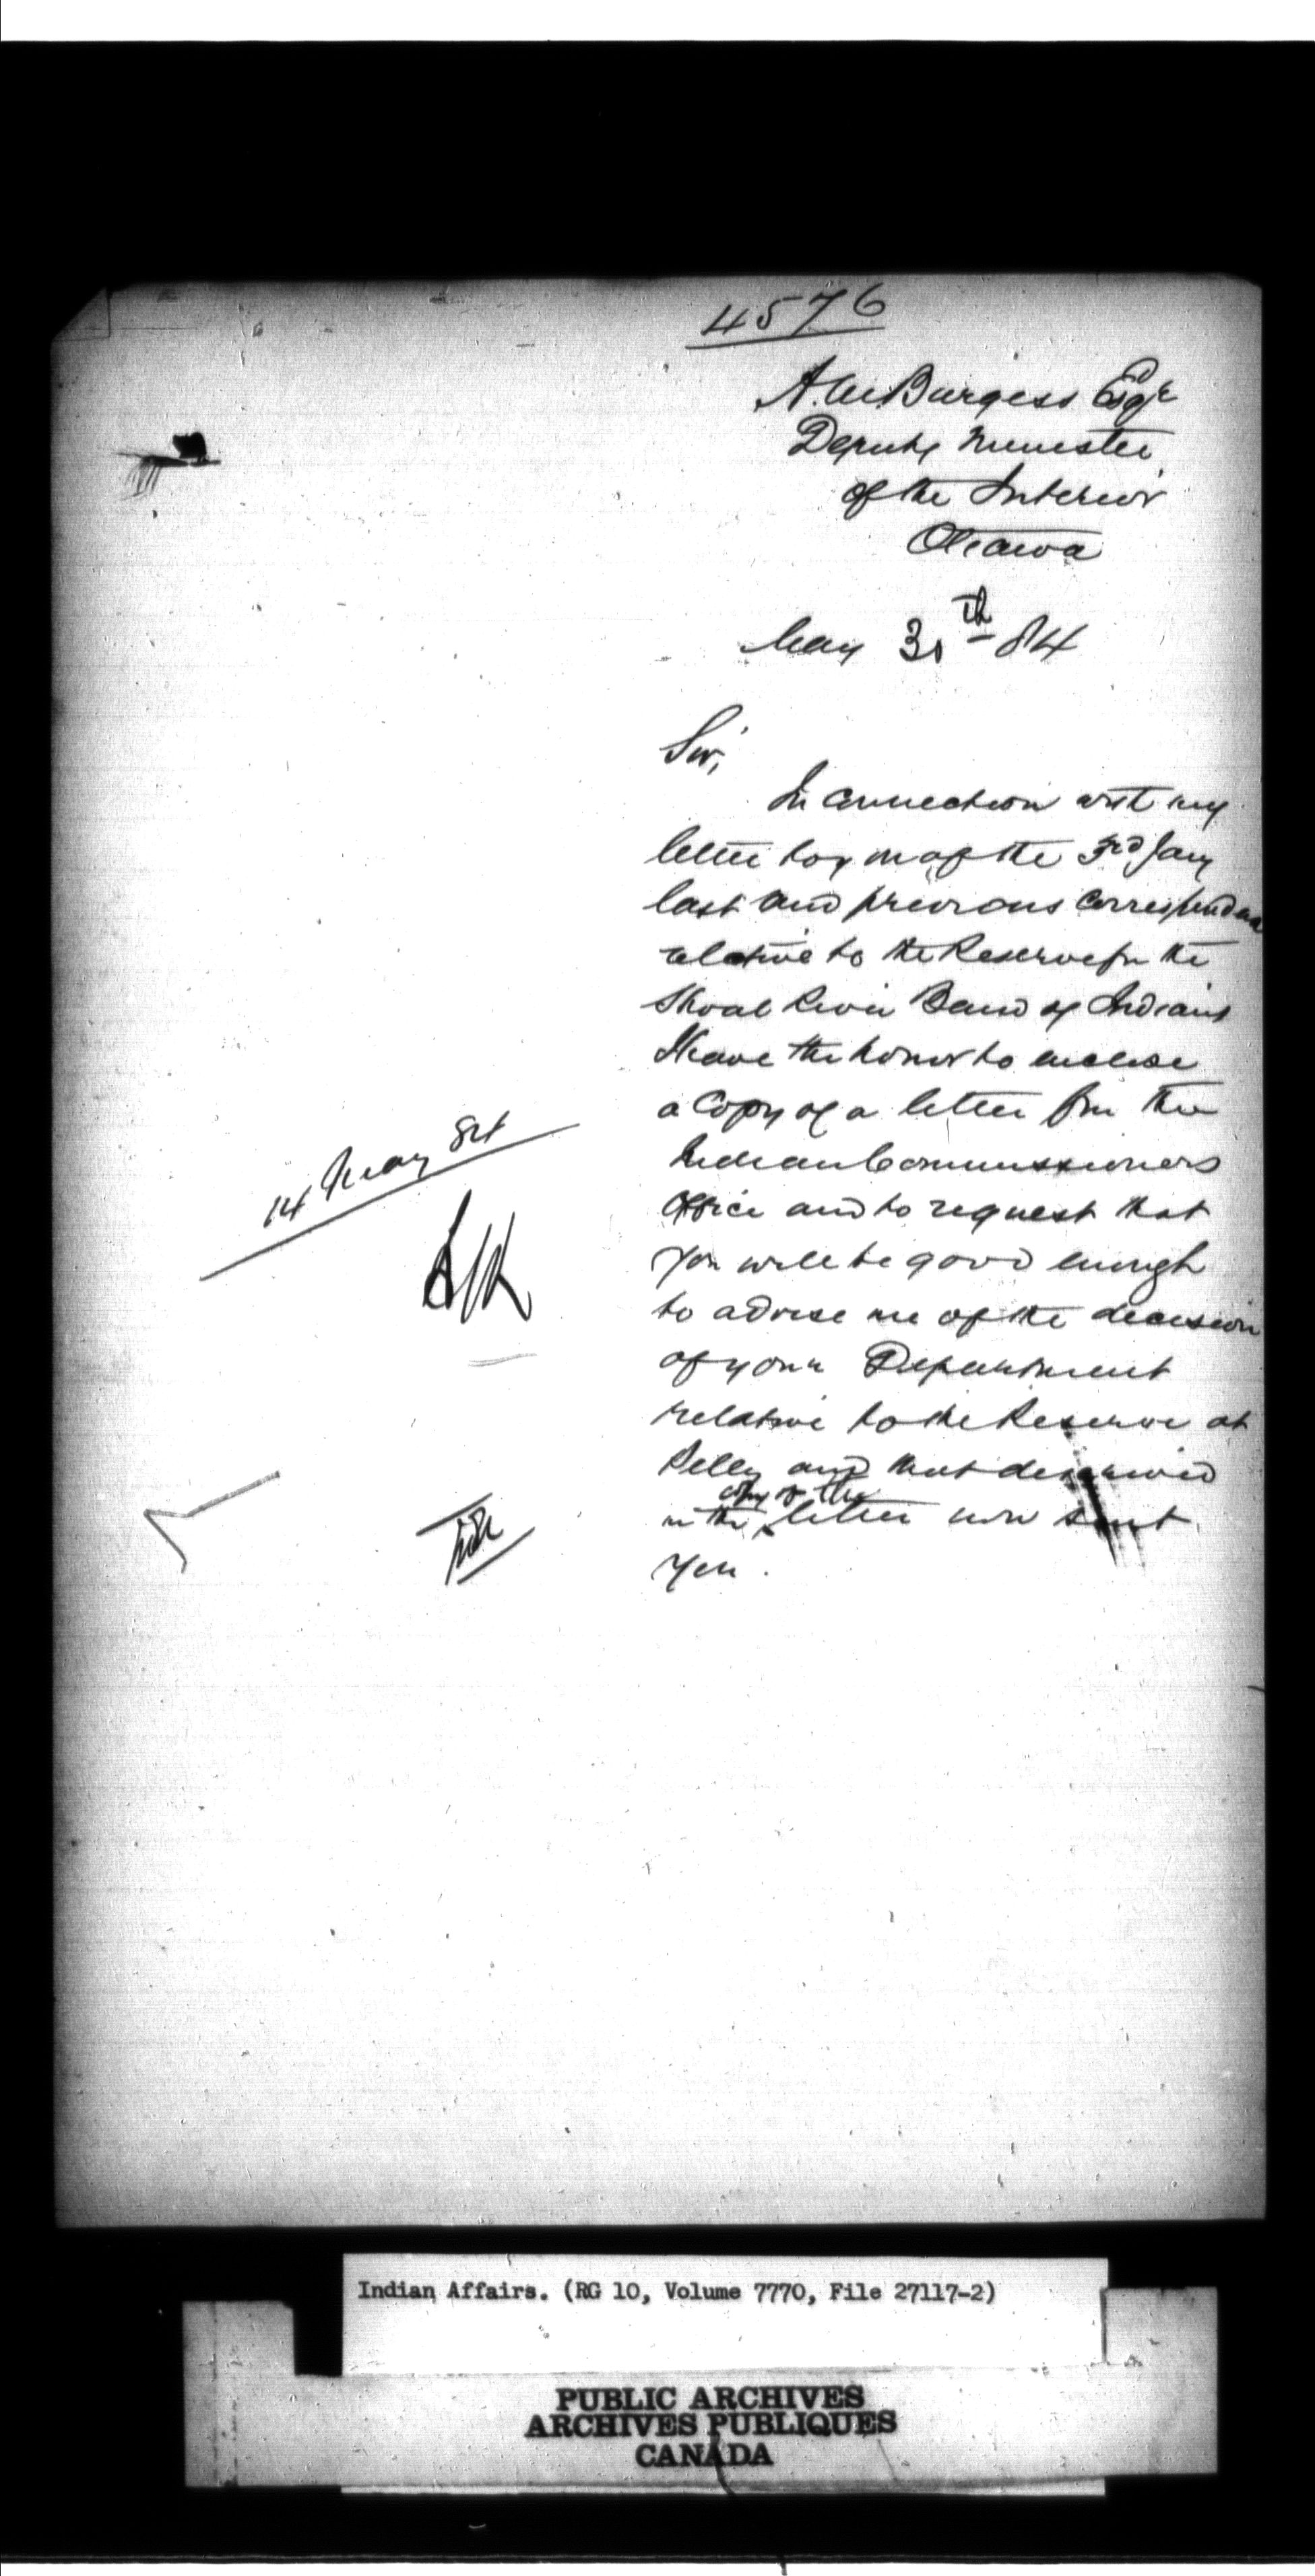 4576
A.M. Burgess Esqr
Deputy Minister
of the Interior
Ottawa
May 30th 84
Sir,
In connection with my
letter to you of the 3rd Jany
last and previous correspondence
relative to the Reserve for the
Shoal River Band of Indians
I have the honor to enclose
a Copy of a letter from the
Indian Commissioners
Office and to request that
you will be good enough
to advise me of the decision
of your Department
relative to the Reserve at
Pelly and that described
copy of the
in the letter now sent
you.
14 May 84
Indian Affairs. (RG 10, Volume 7770, File 27117-2)
PUBLIC ARCHIVES
ARCHIVES PUBLIQUES
CANADA